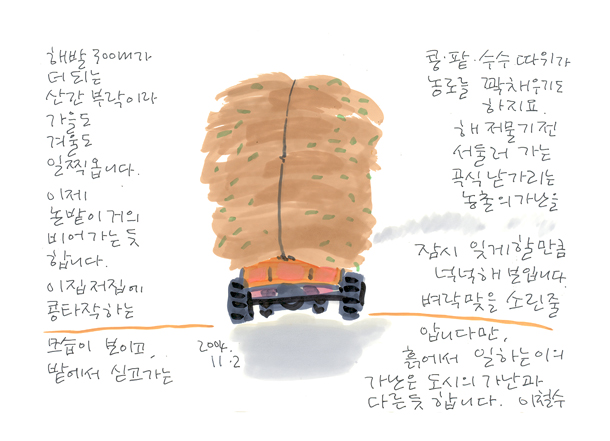 해발 300m가
더 되는
산간 부락이라
가을도
겨울도
일찍 옵니다.
이제
논밭이 거의
비어가는 듯
합니다.
이집저집에
콩타작하는
모습이 보이고,
밭에서 싣고가는
콩·팥·수수 따위가
농로를 꽉채우기도
하지요.
해 저물기전
서둘러 가는
곡식 낟가리는
농촌의 가난을
잠시 잊게할만큼
넉넉해 보입니다.
벼락맞을 소린줄
압니다만,
흙에서 일하는이의
가난은 도시의 가난과
다른듯 합니다. 이철수
2004.
11.2